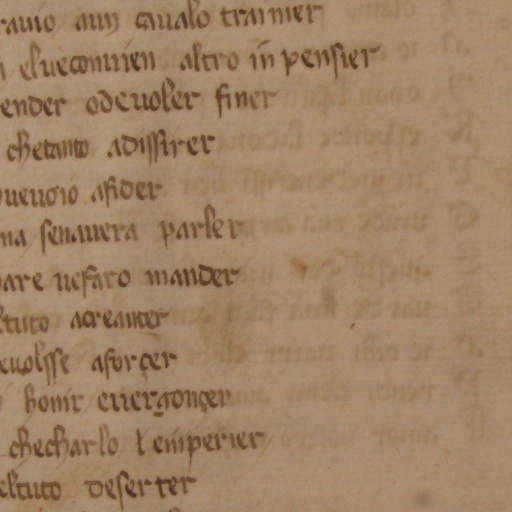 auio aun cauałо trainier
el ueconuien altro in pensier
ender odeuoler finer
chetanto adissirer
ueuoio afider
na senauera parler
are uefaro mander
ltuto acreanter
euolsse aforçer
honir euergonçer
checharlo lemperier
eltuto deserter